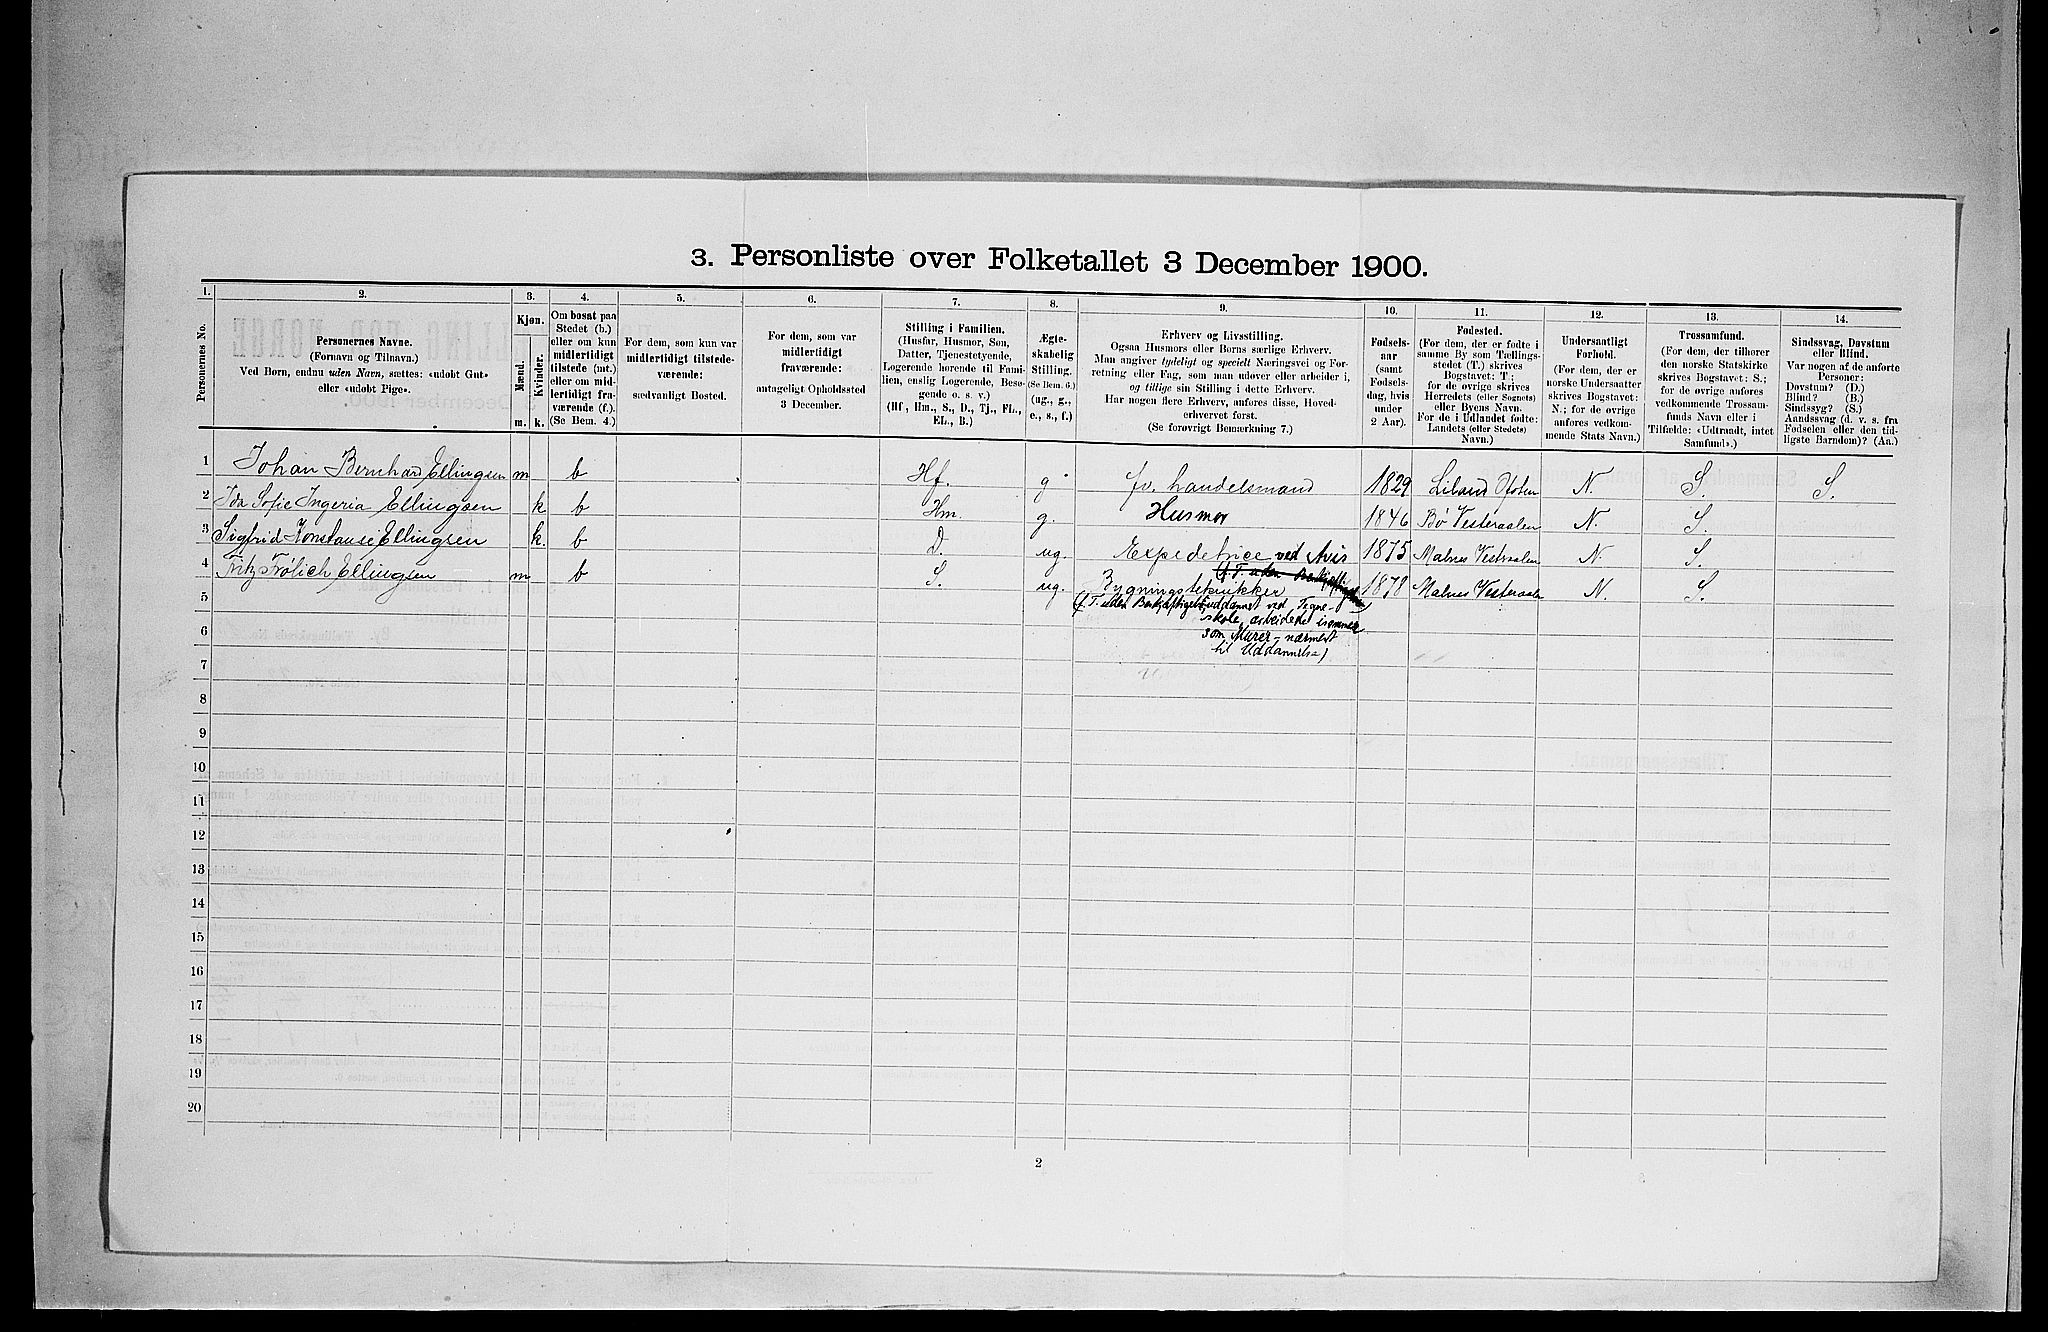 3. Personliste over Folketallet 3 December 1900.
1. 2. 3. 4. 5. 6. 7. 8. 9. 10. 11. 12. 13. 14.
Personernes No.
Personernes Navne.
(Fornavn og Tilnavn.)
Ved Børn, endnu uden Navn, sættes: «udøbt Gut»
eller «udøbt Pige».
Kjøn.
Mænd.
Kvinder.
m. k.
Om bosat paa
Stedet (b.)
eller om kun
midlertidigt
tilstede (mt.)
eller om mid-
lertidigt fra-
værende (f.).
(Se Bem. 4.)
For dem, som kun var
midlertidigt tilstede-
værende:
sædvanligt Bosted.
For dem, som var
midlertidigt
fraværende:
antageligt Opholdssted
3 December.
Stilling i Familien.
(Husfar, Husmor, Søn,
Datter, Tjenestetyende,
Logerende hørende til Fami-
lien, enslig Logerende, Besø-
gende o. s. v.)
(Hf, Hm., S., D., Tj., FL.,
EL., B.)
Ægte-
skabelig
Stilling.
(Se Bem. 6.)
(ug., g.,
e., s., f.)
Erhverv og Livsstilling.
Ogsaa Husmors eller Børns særlige Erhverv.
Man angiver tydeligt og specielt Næringsvei og For-
retning eller Fag, som man udøver eller arbeider i,
og tillige sin Stilling i dette Erhverv.
Har nogen flere Erhverv, anføres disse, Hoved-
erhvervet først.
(Se forøvrigt Bemærkning 7.)
Fødsels-
aar
(samt
Fødsels-
dag, hvis
under
2 Aar).
Fødested.
(For dem, der er fødte i
samme By som Tællings-
stedet (T.) skrives
Bogstavet: T.;
for de øvrige skrives
Herredets (eller Sognets)
eller Byens Navn.
For de i Udlandet fødte:
Landets (eller Stedets)
Navn.)
Undersaatligt
Forhold.
(For dem, der er
norske Undersaatter
skrives Bogstavet:
N.; for de øvrige
anføres vedkom-
mende Stats Navn.)
Trossamfund.
(For dem, der tilhører
den norske Statskirke
skrives Bogstavet: S.;
for de øvrige anføres
vedkommende Trossam-
funds Navn eller i
Tilfælde: «Udtraadt, intet
Samfund».)
Sindssvag, Døvstum
eller Blind.
Var nogen af de anførte
Personer:
Døvstum? (D.)
Blind? (B.)
Sindssyg? (S.)
Aandssvag (d. v. s. fra
Fødselen eller den tid-
ligste Barndom)? (Aa.)
1 Johan Bernhard Ellingsen m b Hf. g. fv. handelsmand 1829 Liland Ofoten N. S. S.
2 Ida Sofie Ingeria Ellingsen k b Hm. g. Husmor 1846 Bø Vesteraalen N. S.
3 Sigfrid Konstanse Ellingsen k. b D. ug. Expeditrice ved Avis 1875 Malnes Vestraalen N. S.
(f. T. uden Beskjæftigelse
4 Fritz Frølich Ellingsen m b S. ug. Bygningstekniker 1878 Malnes Vesteraalen N. S.
5 (f. T. uden Beskjæftigelse uddannet ved Tegne-
skole, arbeidede isommer
6 som Murer - nærmest
til Uddannelse)
7
8
9
10
11
12
13
14
15
16
17
18
19
20
2